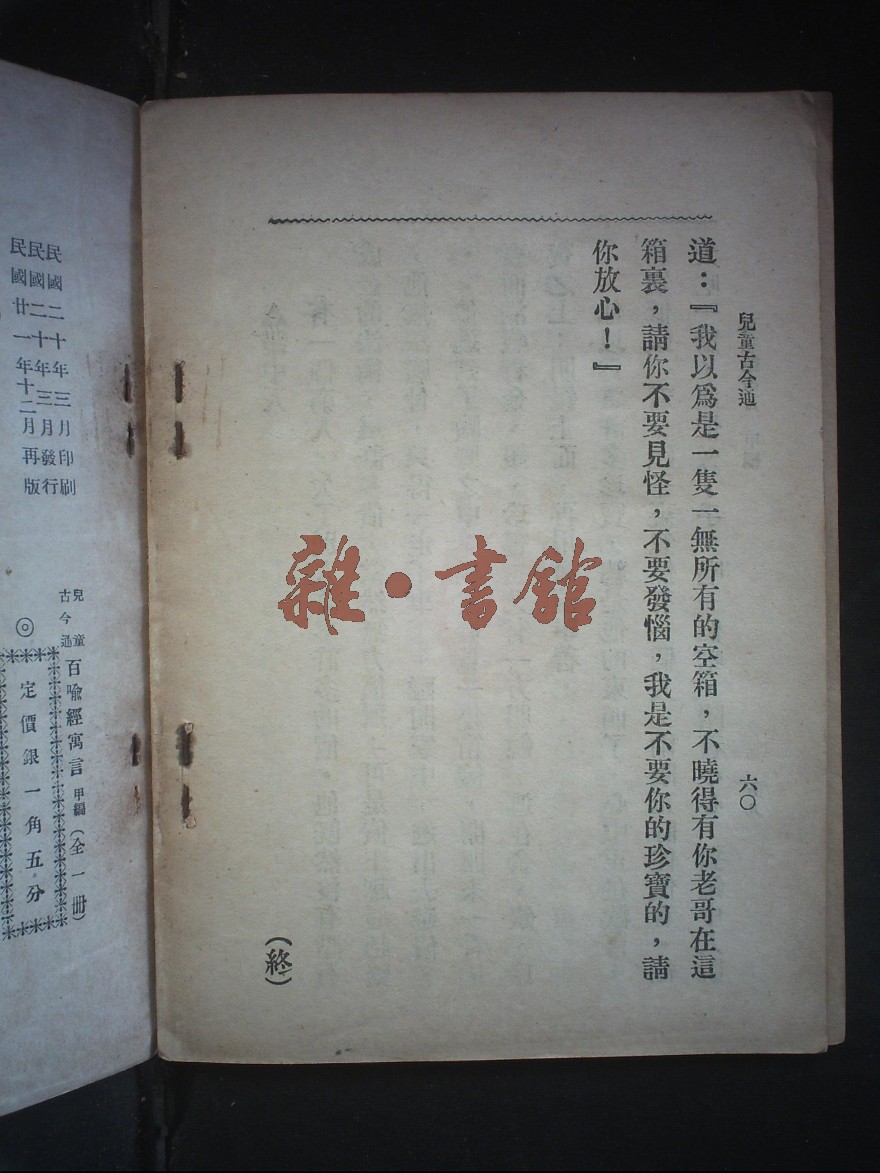 兒童古今通
六〇
道：『我以爲是一隻一無所有的空箱，不曉得有你老哥在這
箱裏，請你不要見怪，不要發惱，我是不要你的珍寶的，請
你放心！』
（終）
雜·書館
民國二十年三月印刷
民國二十年三月發行
民國廿一年十二月再版
兒童
古今通
百喻經寓言
甲編
（全一册）
◎
定價銀一角五分